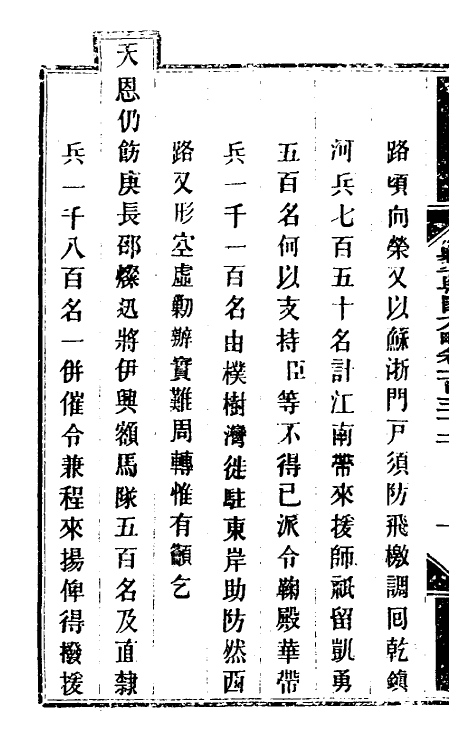 路頃向榮又以蘇浙門戸須防飛檄調囘乾鎮
河兵七百五十名計江南帶來援師祇留凱勇
五百名何以支持臣等不得已派令鞠殿華帶
兵一千一百名由樸樹灣徙駐東岸助防然西
路又形空虛勦辦實難周轉惟有籲乞
天恩仍飭庚長邵燦迅將伊興額馬隊五百名及直隸
兵一千八百名一併催令兼程來揚俾得撥援